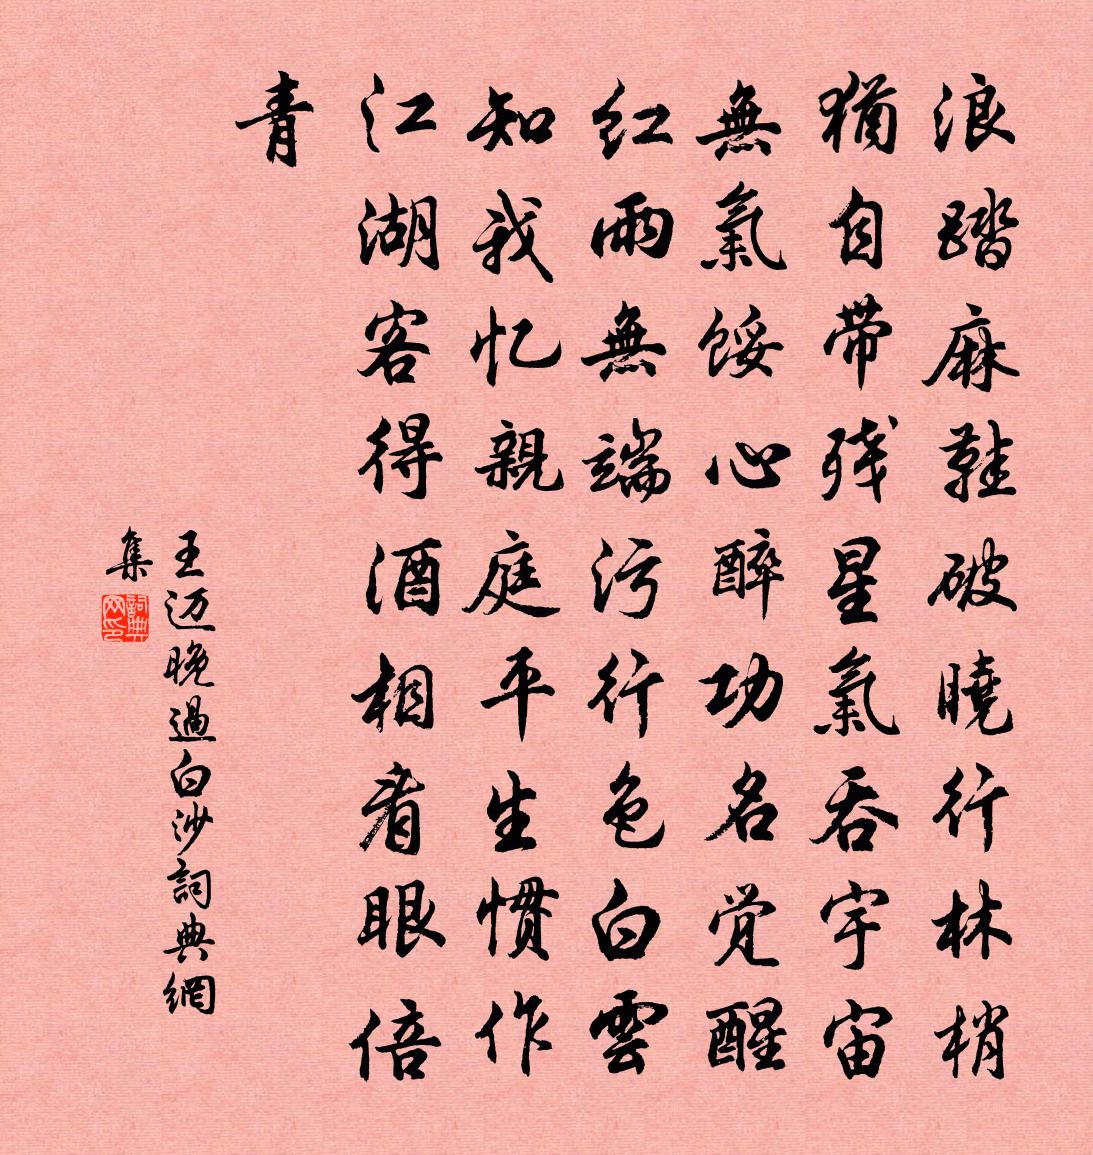 浪踏麻鞋破曉行林梢
猶自帶残星氣吞宇宙
無氣餒心醉功名觉醒
红雨無端污行色白雲
知我忆親庭平生慣作
江湖客得酒相看眼倍
青
王迈晚過白沙詞典網
集
詞典网印